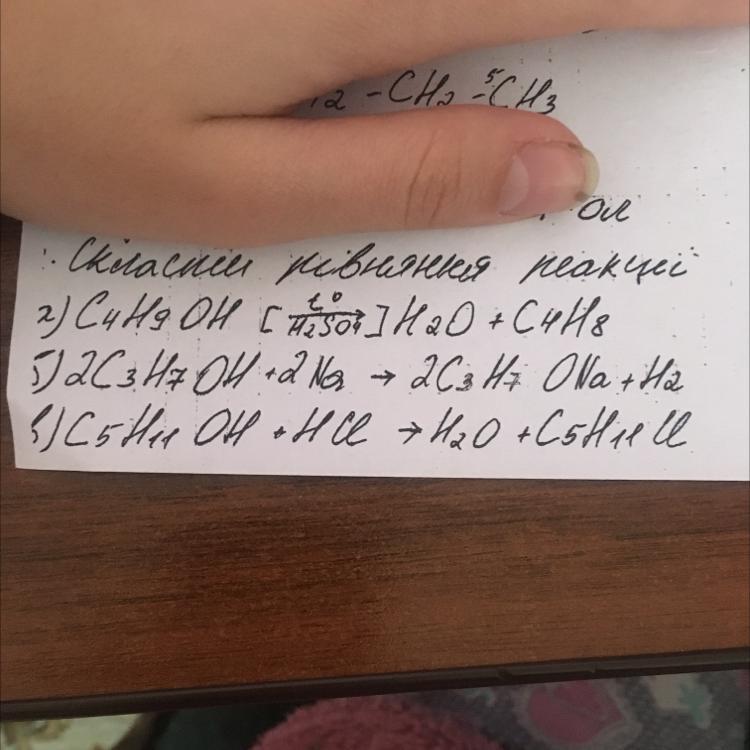 12 -CH2 -⁵CH3
ол
: Скласти рівняння реакції
а) C4H9OH [t°/H2SO4→] H2O + C4H8
б) 2C3H7OH + 2Na → 2C3H7ONa + H2
в) C5H11OH + HCl → H2O + C5H11Cl